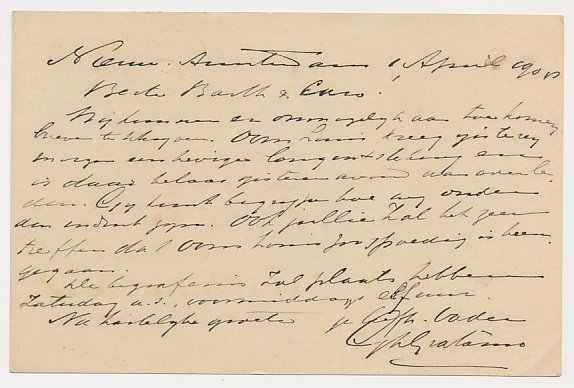 Nieuw-Amsterdam 1 April 1900
Beste Barth & Caro!
Wij kunnen er onmogelijk aan toe komen
brieven te schrijven. Oom Louis kreeg gisteren
morgen een hevige longontsteking en
is daar helaas gisteren avond aan overle-
den. Gij kunt begrijpen hoe wij onder
den indruk zijn. Ook jullie zal het zeer
treffen dat Oom Louis zoo spoedig is heen-
gegaan.
De begrafenis zal plaats hebben
Zaterdag a.s. voormiddags elf uur.
Na hartelijke groete je liefh. Vader
Gratama